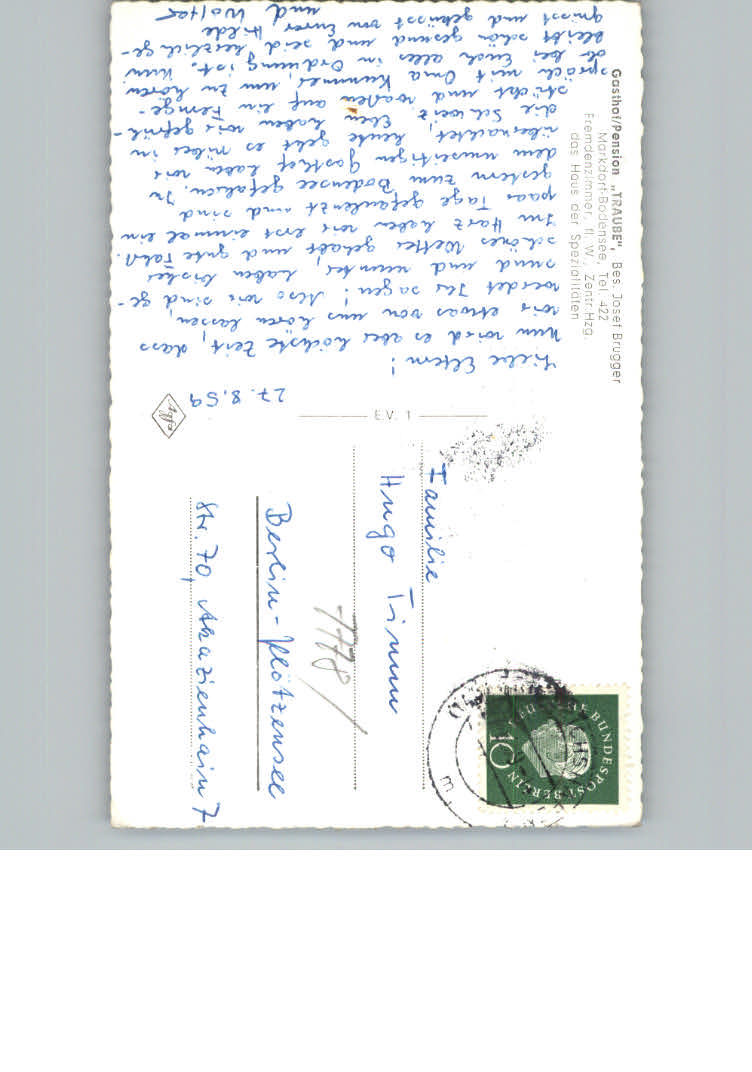 Gasthof/Pension „TRAUBE", Bes. Josef Brugger
Markdorf-Bodensee, Tel. 422
Fremdenzimmer, fl. W., Zentr. Hzg.
das Haus der Spezialitäten
27.8.59
Liebe Eltern!
Nun wird es aber höchste Zeit, dass
wir etwas von uns hören lassen,
werdet Ihr sagen! Also wir sind ge-
sund und munter, haben bisher
schönes Wetter gehabt, und gute Fahrt.
Im Harz haben wir erst einmal ein
paar Tage gefaulenzt und sind
gestern zum Bodensee gefahren. In
dem umseitigen Gasthof haben wir
übernachtet, heute geht es rüber in
die Schweiz. Eben haben wir gefrüh-
stückt und warten auf ein Fernge-
spräch mit Oma Kummer, um zu hören
ob bei Euch alles in Ordnung ist. Nun
bleibt schön gesund und seid herzlich ge-
grüsst und geküsst von Eurer Hilde
und Wolter
E.V. 1
Agfa
Familie
Hugo Timm
Berlin-Plötzensee
Str. 70, Akazienhain 7
7778/
10
DEUTSCHE BUNDESPOST BERLIN
m